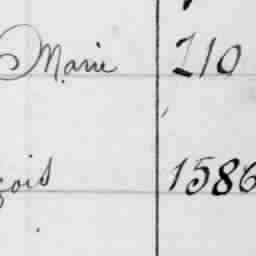 Marie 210
çois 1586